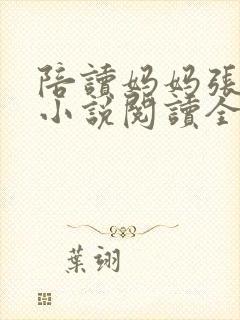 陪讀媽媽張
小說閱讀全
葉翊